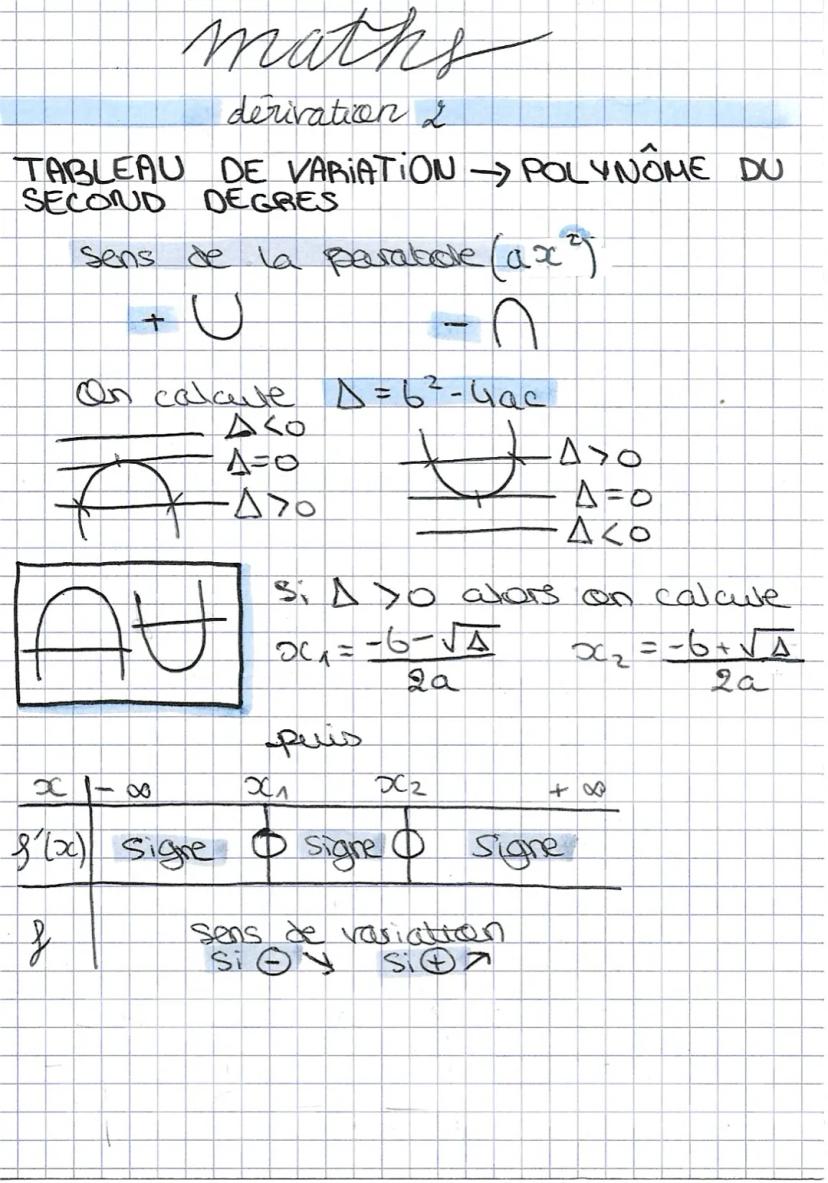 maths
dérivation 2
TABLEAU DE VARIATION → POLYNÔME DU
SECOND DEGRES
sens de la parabole (ax²)
+ ∪ - ∩
On calcule Δ = b² - 4ac
Δ<0
Δ=0
Δ>0
Δ>0
Δ=0
Δ<0
Si Δ >0 alors on calcule
x₁ = (-b-√Δ)/2a x₂ = (-b+√Δ)/2a
puis
x -∞ x₁ x₂ +∞
f'(x) signe 0 signe 0 signe
f sens de variation
si ⊖ ↘ si ⊕ ↗